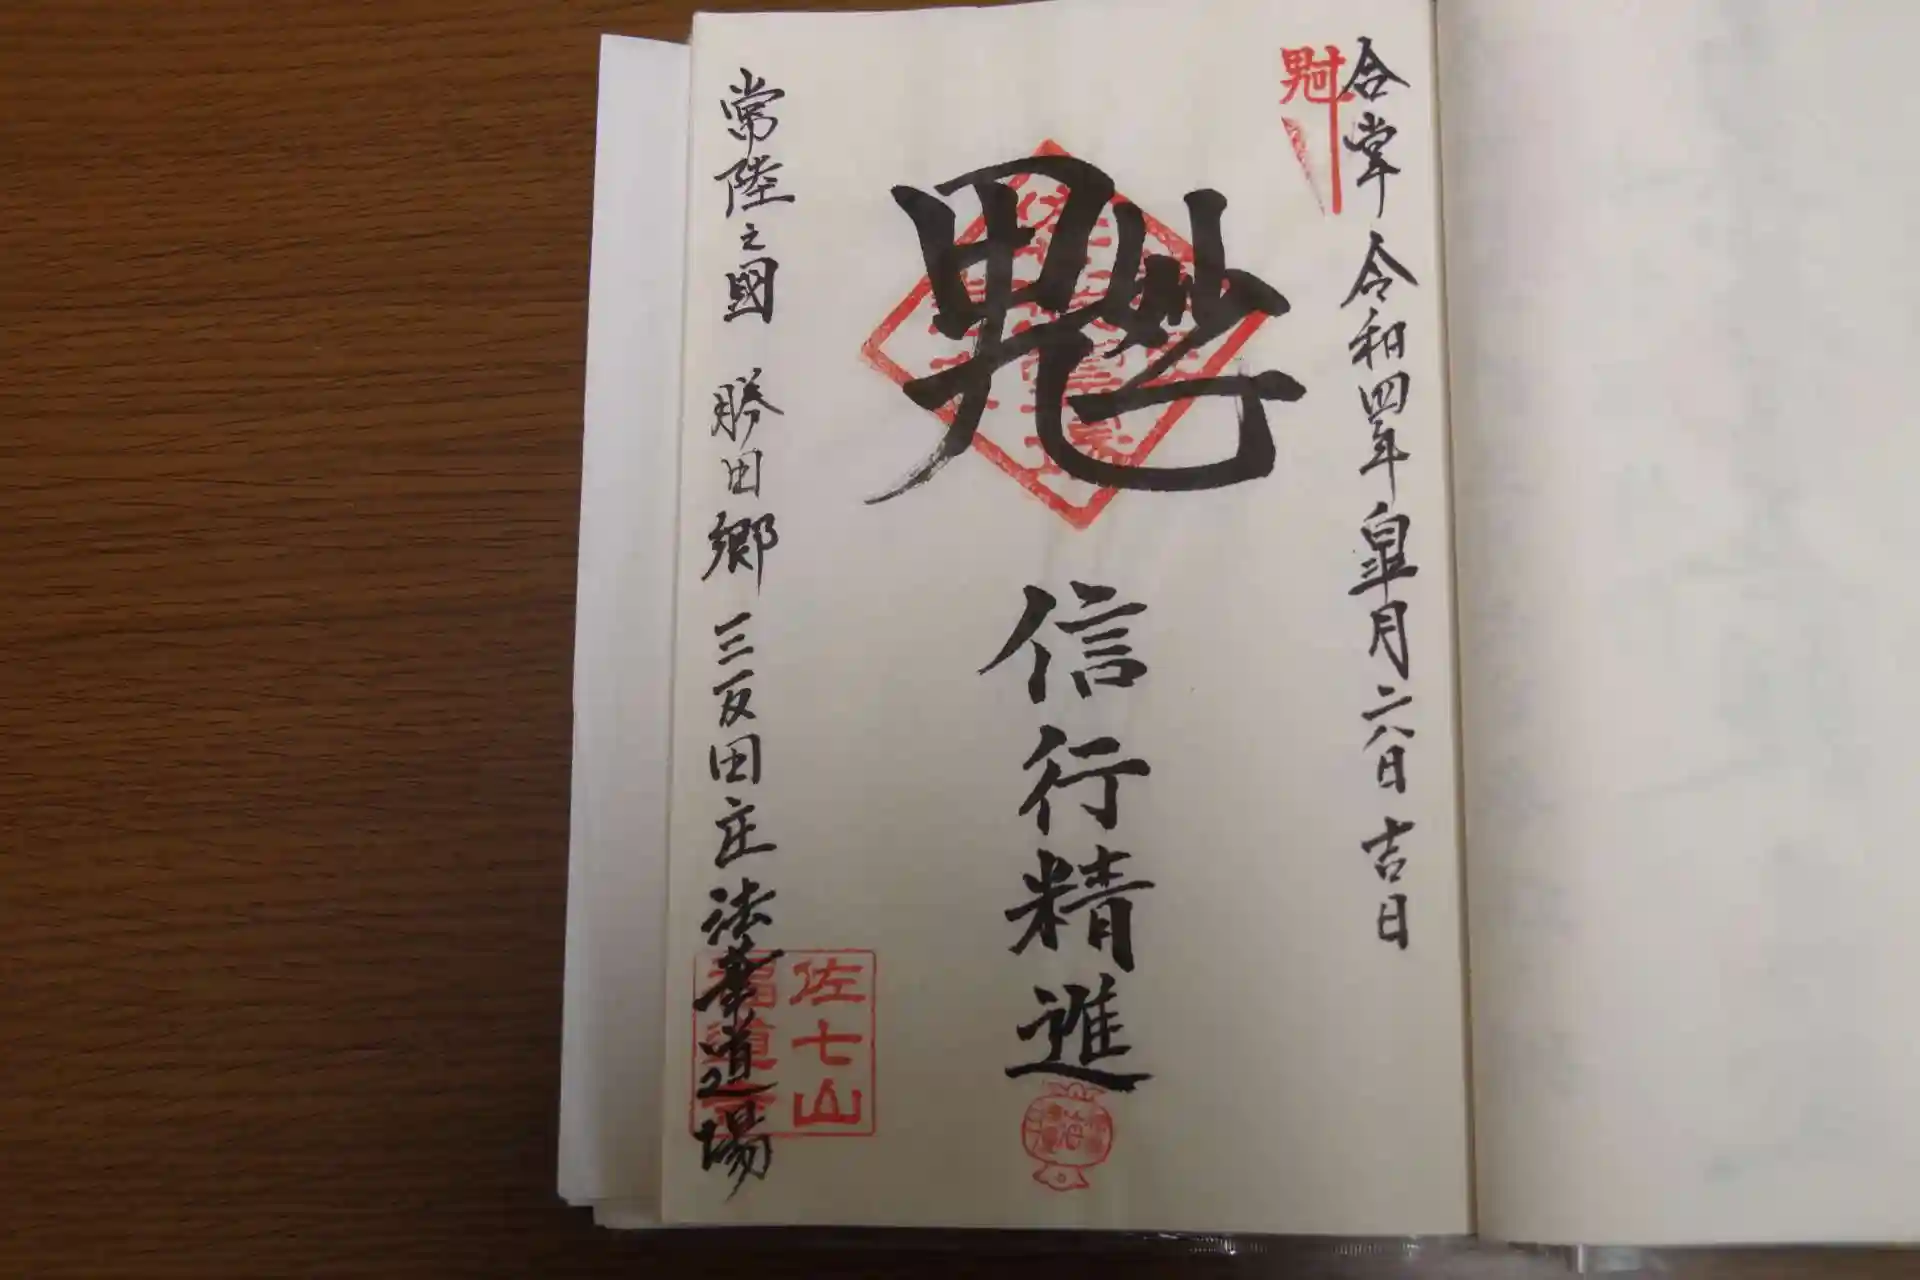 合掌 令和四年 皐月二八日 吉日
信行精進
常陸之國 勝田郷 三反田庄 法華道場
佐七山